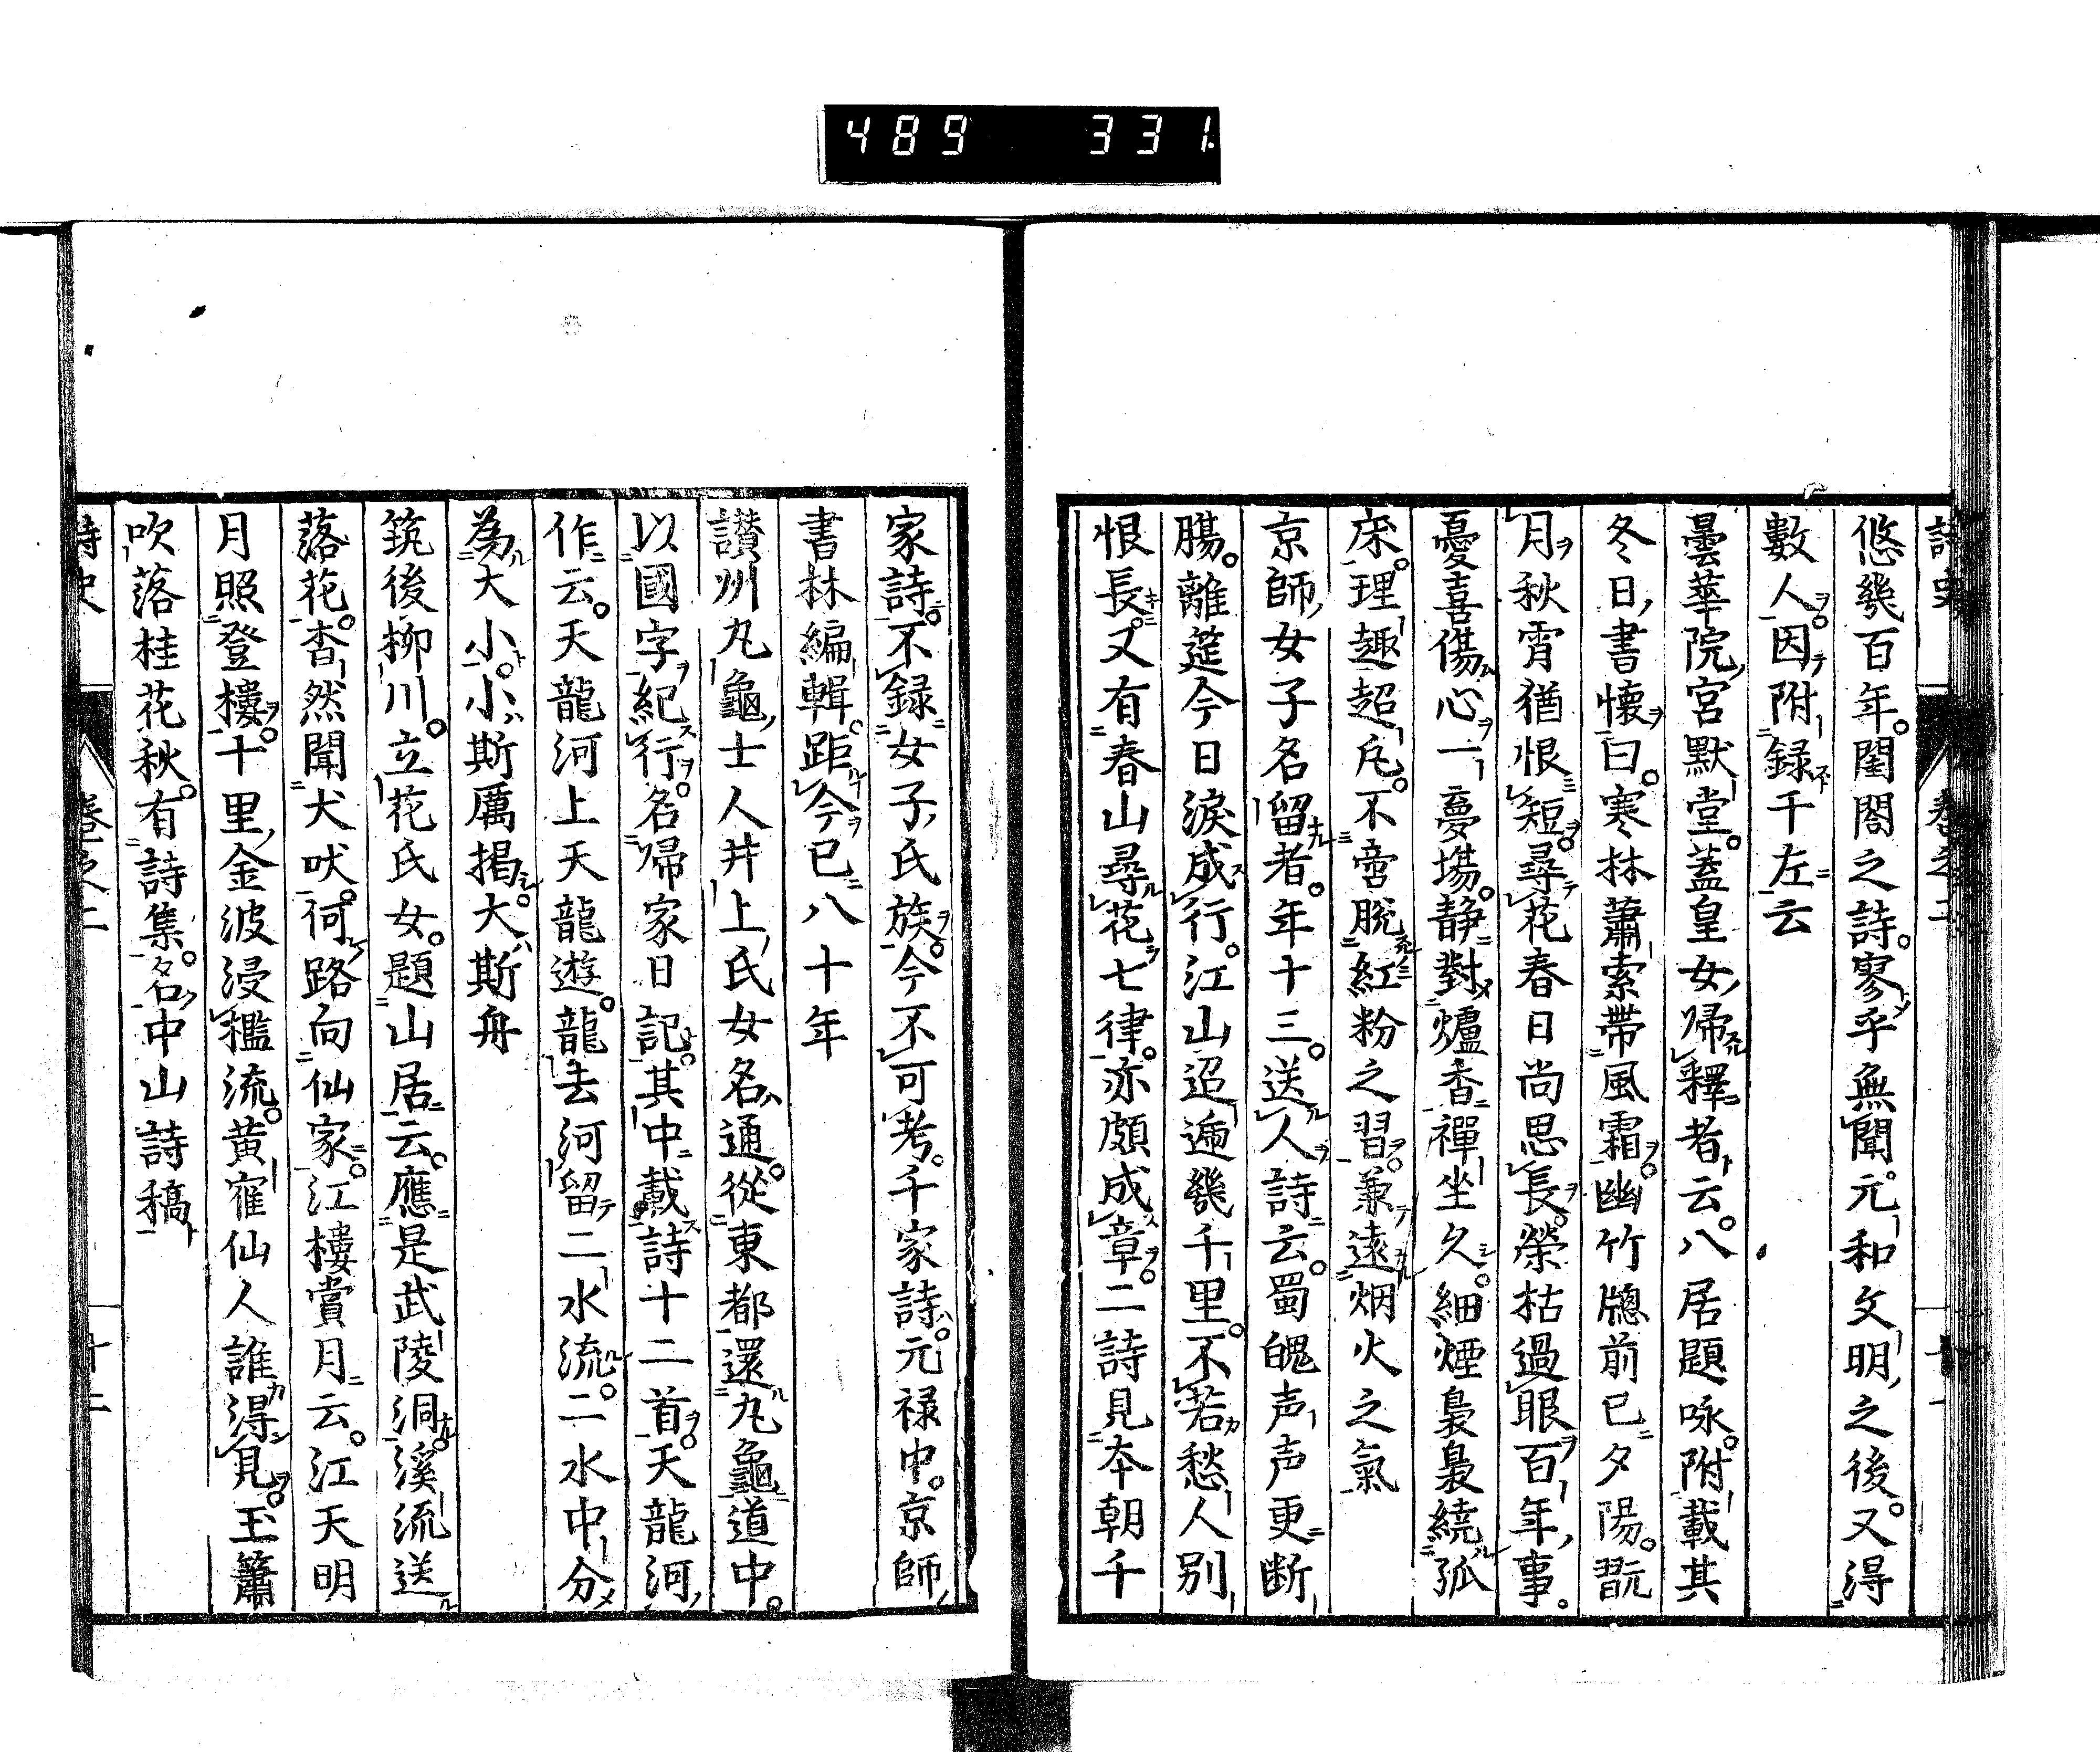 489 331
悠幾百年。閨閤之詩。寥乎無聞。元和文明之後。又得
數人。因附録于左云
曇華院宮默堂。蓋皇女歸釋者云。八居題咏。附載其
冬日書懷曰。寒林蕭索帶風霜。幽竹牕前已夕陽。翫
月秋宵猶恨短。尋花春日尚思長。榮枯過眼百年事。
憂喜傷心一夢場。静對爐香禪坐久。細煙裊裊繞孤
床。理趣超凡。不啻脱紅粉之習。兼遠烟火之氣
京師女子名留者。年十三。送人詩云。蜀魄声声更断
腸。離筵今日淚成行。江山迢遞幾千里。不若愁人別
恨長。又有春山尋花七律。亦頗成章。二詩見本朝千
家詩。不録女子氏族。今不可考。千家詩。元禄中。京師
書林編輯。距今已八十年
讃州丸龜士人井上氏女名通。從東都還丸龜道中。
以國字紀行。名歸家日記。其中載詩十二首。天龍河
作云。天龍河上天龍遊。龍去河留二水流。二水中分
為大小。小斯厲掲大斯舟
筑後柳川。立花氏女。題山居云。應是武陵洞。溪流送
落花。杳然聞犬吠。何路向仙家。江樓賞月云。江天明
月照登樓。十里金波浸檻流。黄寉仙人誰得見。玉簫
吹落桂花秋。有詩集。名中山詩稿
詩史 卷之二 十二